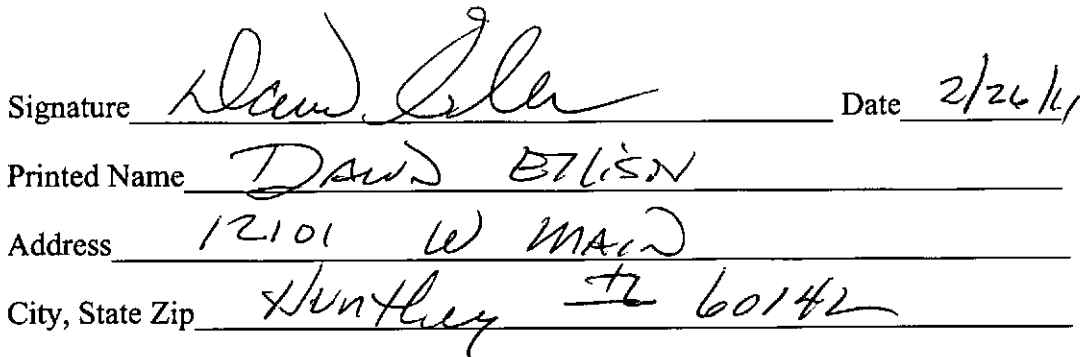 Signature David Date 2/26/11
Printed Name DAVID
Address 12101 W MAIN
City, State Zip Huntley IL 60142